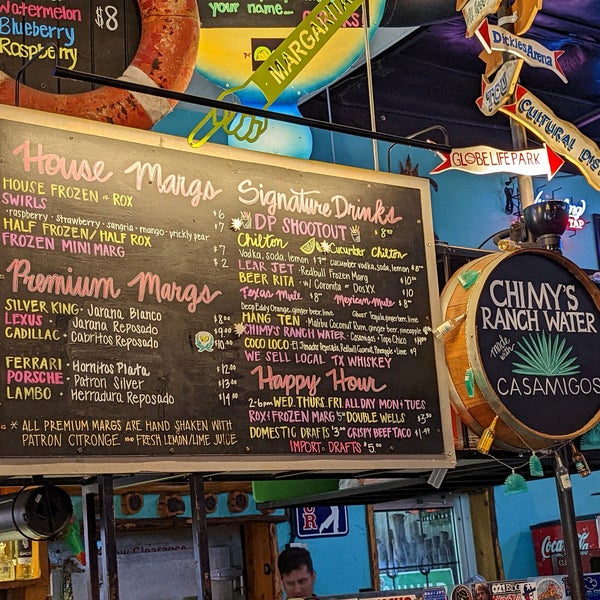 Watermelon
Blueberry
Raspberry
$8
your name...
MARGARITA
DickiesArena
CULTURAL DIST
GLOBE LIFE PARK
House Margs
HOUSE FROZEN OR ROX $6
SWIRLS $7
· raspberry · strawberry · sangria · mango · prickly pear
HALF FROZEN/HALF ROX $7
FROZEN MINI MARG $2
Premium Margs
SILVER KING · Jarana Blanco $8.00
LEXUS · Jarana Reposado $9.00
CADILLAC · Cabritos Reposado
FERRARI · Hornitos Plata $12.00
PORSCHE · Patron Silver $13.00
LAMBO · Herradura Reposado $14.00
* ALL PREMIUM MARGS ARE HAND SHAKEN WITH
PATRON CITRONGE AND FRESH LEMON/LIME JUICE
Signature Drinks
DP SHOOTOUT $8
Chilton Cucumber Chilton
Vodka, soda, lemon $7 cucumber vodka, soda, lemon $8
LEAR JET · Redbull Frozen Marg $10
BEER RITA · w/ Coronita or DosXX $10
Texas Mule $8 Mexican Mule $8
Deep Eddy Orange, ginger beer, lime Ghost Tequila, ginger beer, lime
HANG TEN · Malibu Coconut Rum, ginger beer, pineapple
CHIMY'S RANCH WATER · Casamigos + Topo Chico
COCO LOCO · El Jimador Reposado, Redbull, Coconut, Pineapple + Lime $9
WE SELL LOCAL TX WHISKEY
Happy Hour
2-6pm WED THURS FRI ALL DAY MON & TUES
ROX & FROZEN MARG $5 DOUBLE WELLS $5.50
DOMESTIC DRAFTS $3.00 CRISPY BEEF TACO $1.49
IMPORT DRAFTS $5.00
CHIMY'S
RANCH WATER
Made with
CASAMIGOS
Coca-Cola